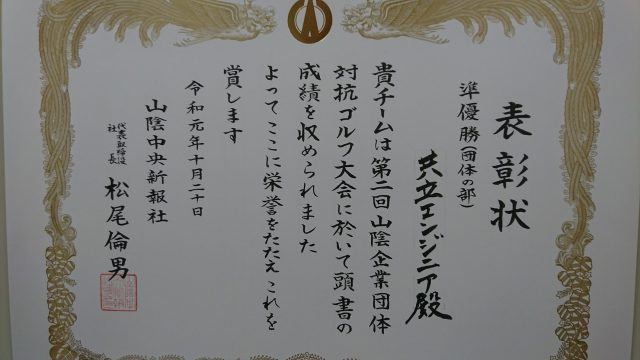 表彰状
準優勝(団体の部)
共立エンジニア殿
貴チームは第二回山陰企業団体
対抗ゴルフ大会に於いて頭書の
成績を収められました
よってここに栄誉をたたえこれを
賞します
令和元年十月二十日
山陰中央新報社
代表取締役
社長
松尾倫男